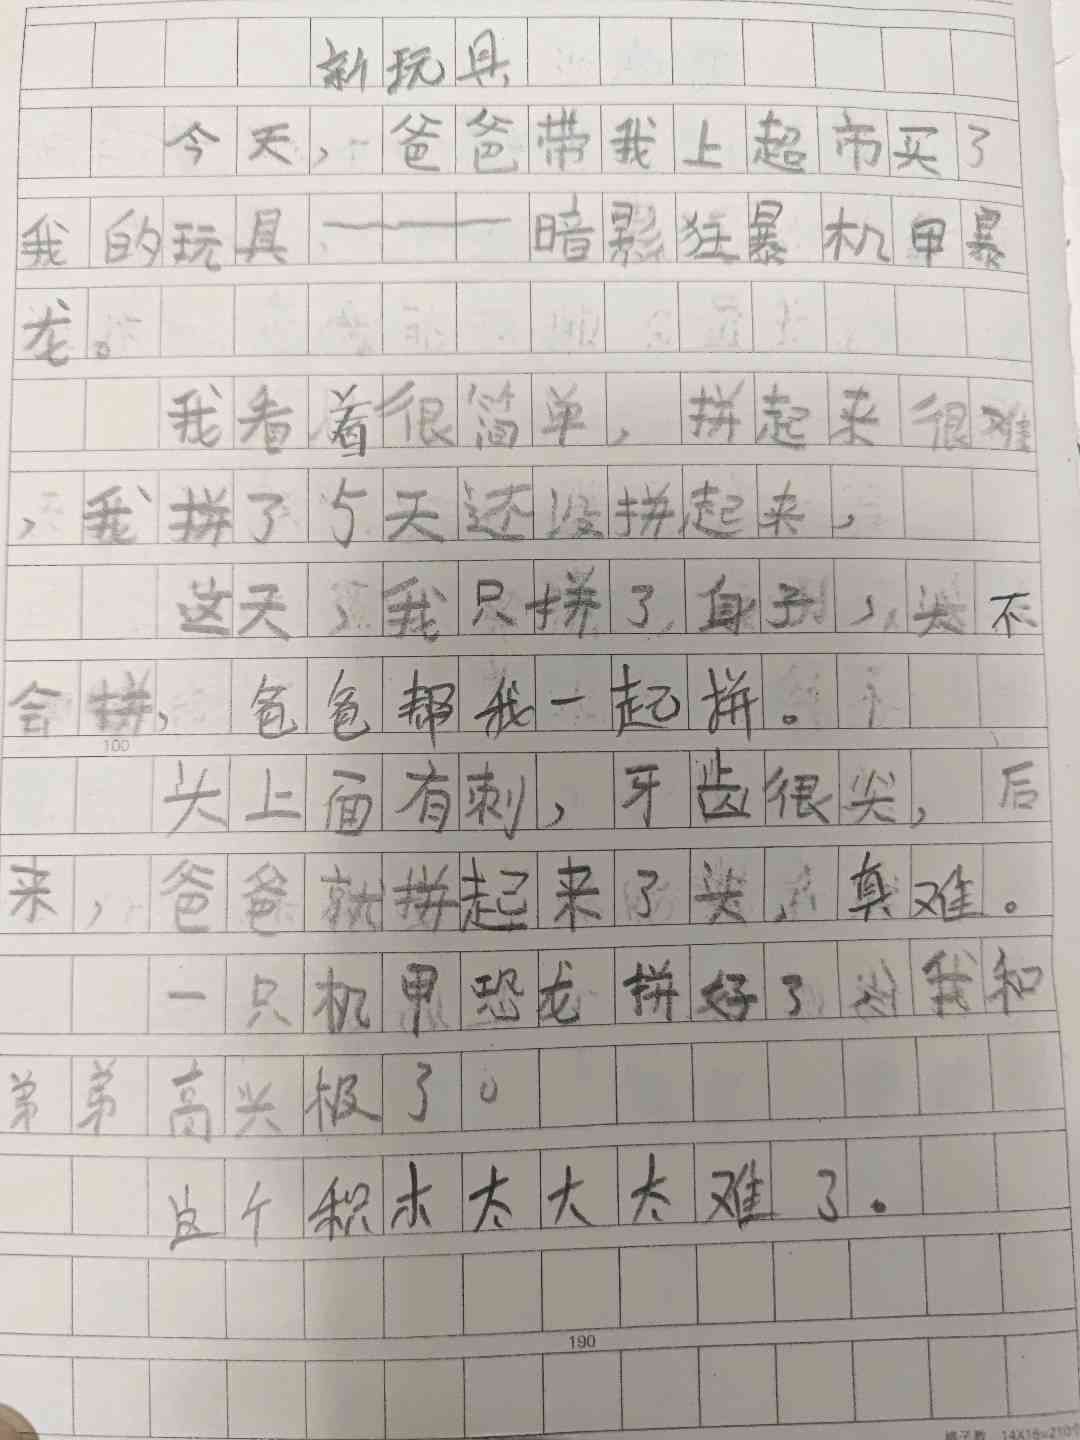 新玩具
今天，爸爸带我上超市买了
我的玩具———暗影狂暴机甲暴
龙。
我看着很简单，拼起来很难
，我拼了5天还没拼起来，
这天，我只拼了身子，头不
会拼，爸爸帮我一起拼。
100
头上面有刺，牙齿很尖，后
来，爸爸就拼起来了头，真难。
一只机甲恐龙拼好了 我和
弟弟高兴极了。
这个积木太大太难了。
190
14X16=210